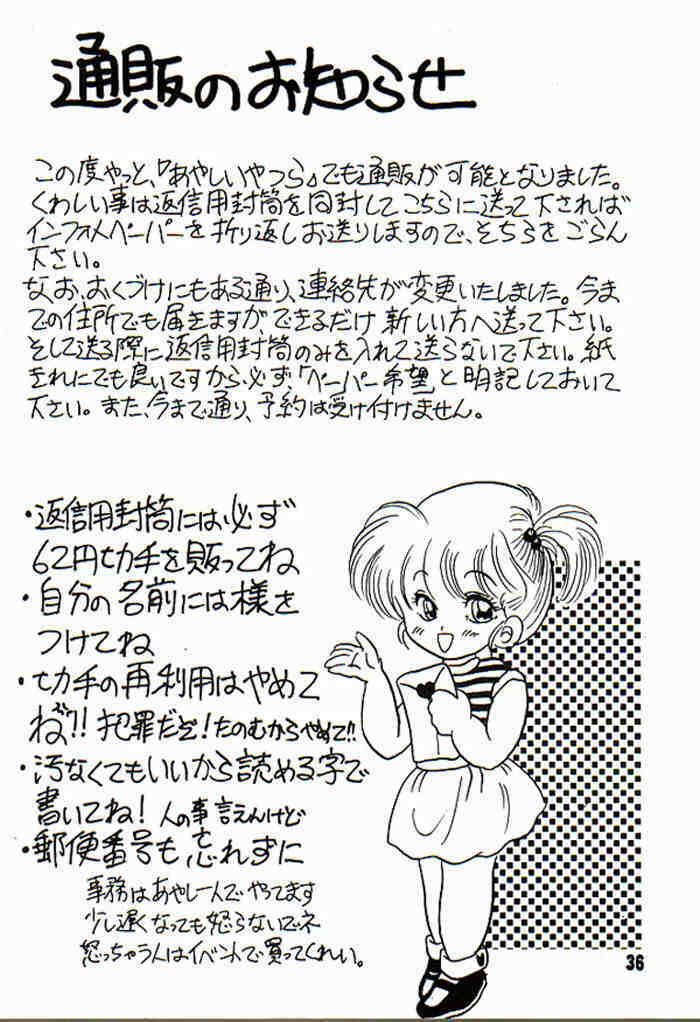 通販のお知らせ
この度やっと、『あやしいやつら』でも通販が可能となりました。
くわしい事は返信用封筒を同封してこちらに送って下されば
インフォメペーパーを折り返しお送りしますので、そちらをごらん
下さい。
なお、おくづけにもある通り、連絡先が変更いたしました。今ま
での住所でも届きますが、できるだけ新しい方へ送って下さい。
そして送る際に返信用封筒のみを入れて送らないで下さい。紙
きれにでも良いですから、必ず、「ペーパー希望」と明記しておいて
下さい。また、今まで通り、予約は受け付けません。
・返信用封筒には必ず
62円切手を貼ってね
・自分の名前には様を
つけてね
・切手の再利用はやめて
ね?! 犯罪だぞ!たのむからやめて!!
・汚なくてもいいから読める字で
書いてね! 人の事言えんけど
・郵便番号も忘れずに
事務はあやし一人でやってます
少し遅くなっても怒らないでネ
怒っちゃう人はイベントで買ってくれい。
36